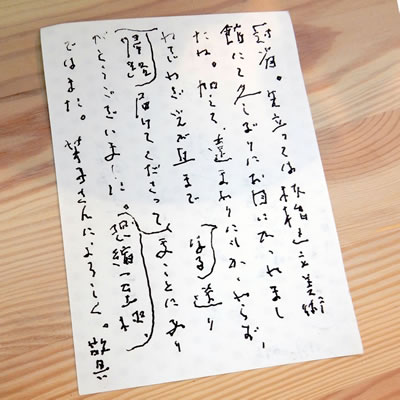 冠省。先立っては板橋区立美術
館にて久しぶりにお目にかかれまし
たね。加えて、遠まわりにもかかわらず、
わざわざ光が丘まで
届けてくださって、まことにあり
がとうございました。恐縮至極
ではまた。葉子さんによろしく。敬具